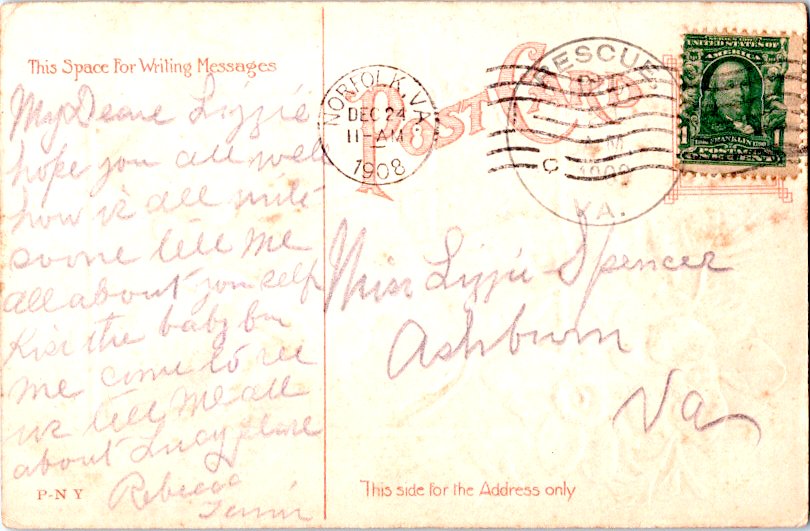 This Space For Writing Messages
My Deare Lizzie
hope you all well
how is all write
soone tell me
all about you self
Kiss the baby for
me come to see
us tell me all
about Lucy please
Rebecca
P-N Y
NORFOLK, VA.
DEC 24
11-AM
1908
POST CARD
RESCUE
M
1908
VA.
SERIES 1902
UNITED STATES OF
AMERICA
FRANKLIN
1
POSTAGE
ONE CENT
Miss Lizzie Spencer
Ashburn
Va
This side for the Address only